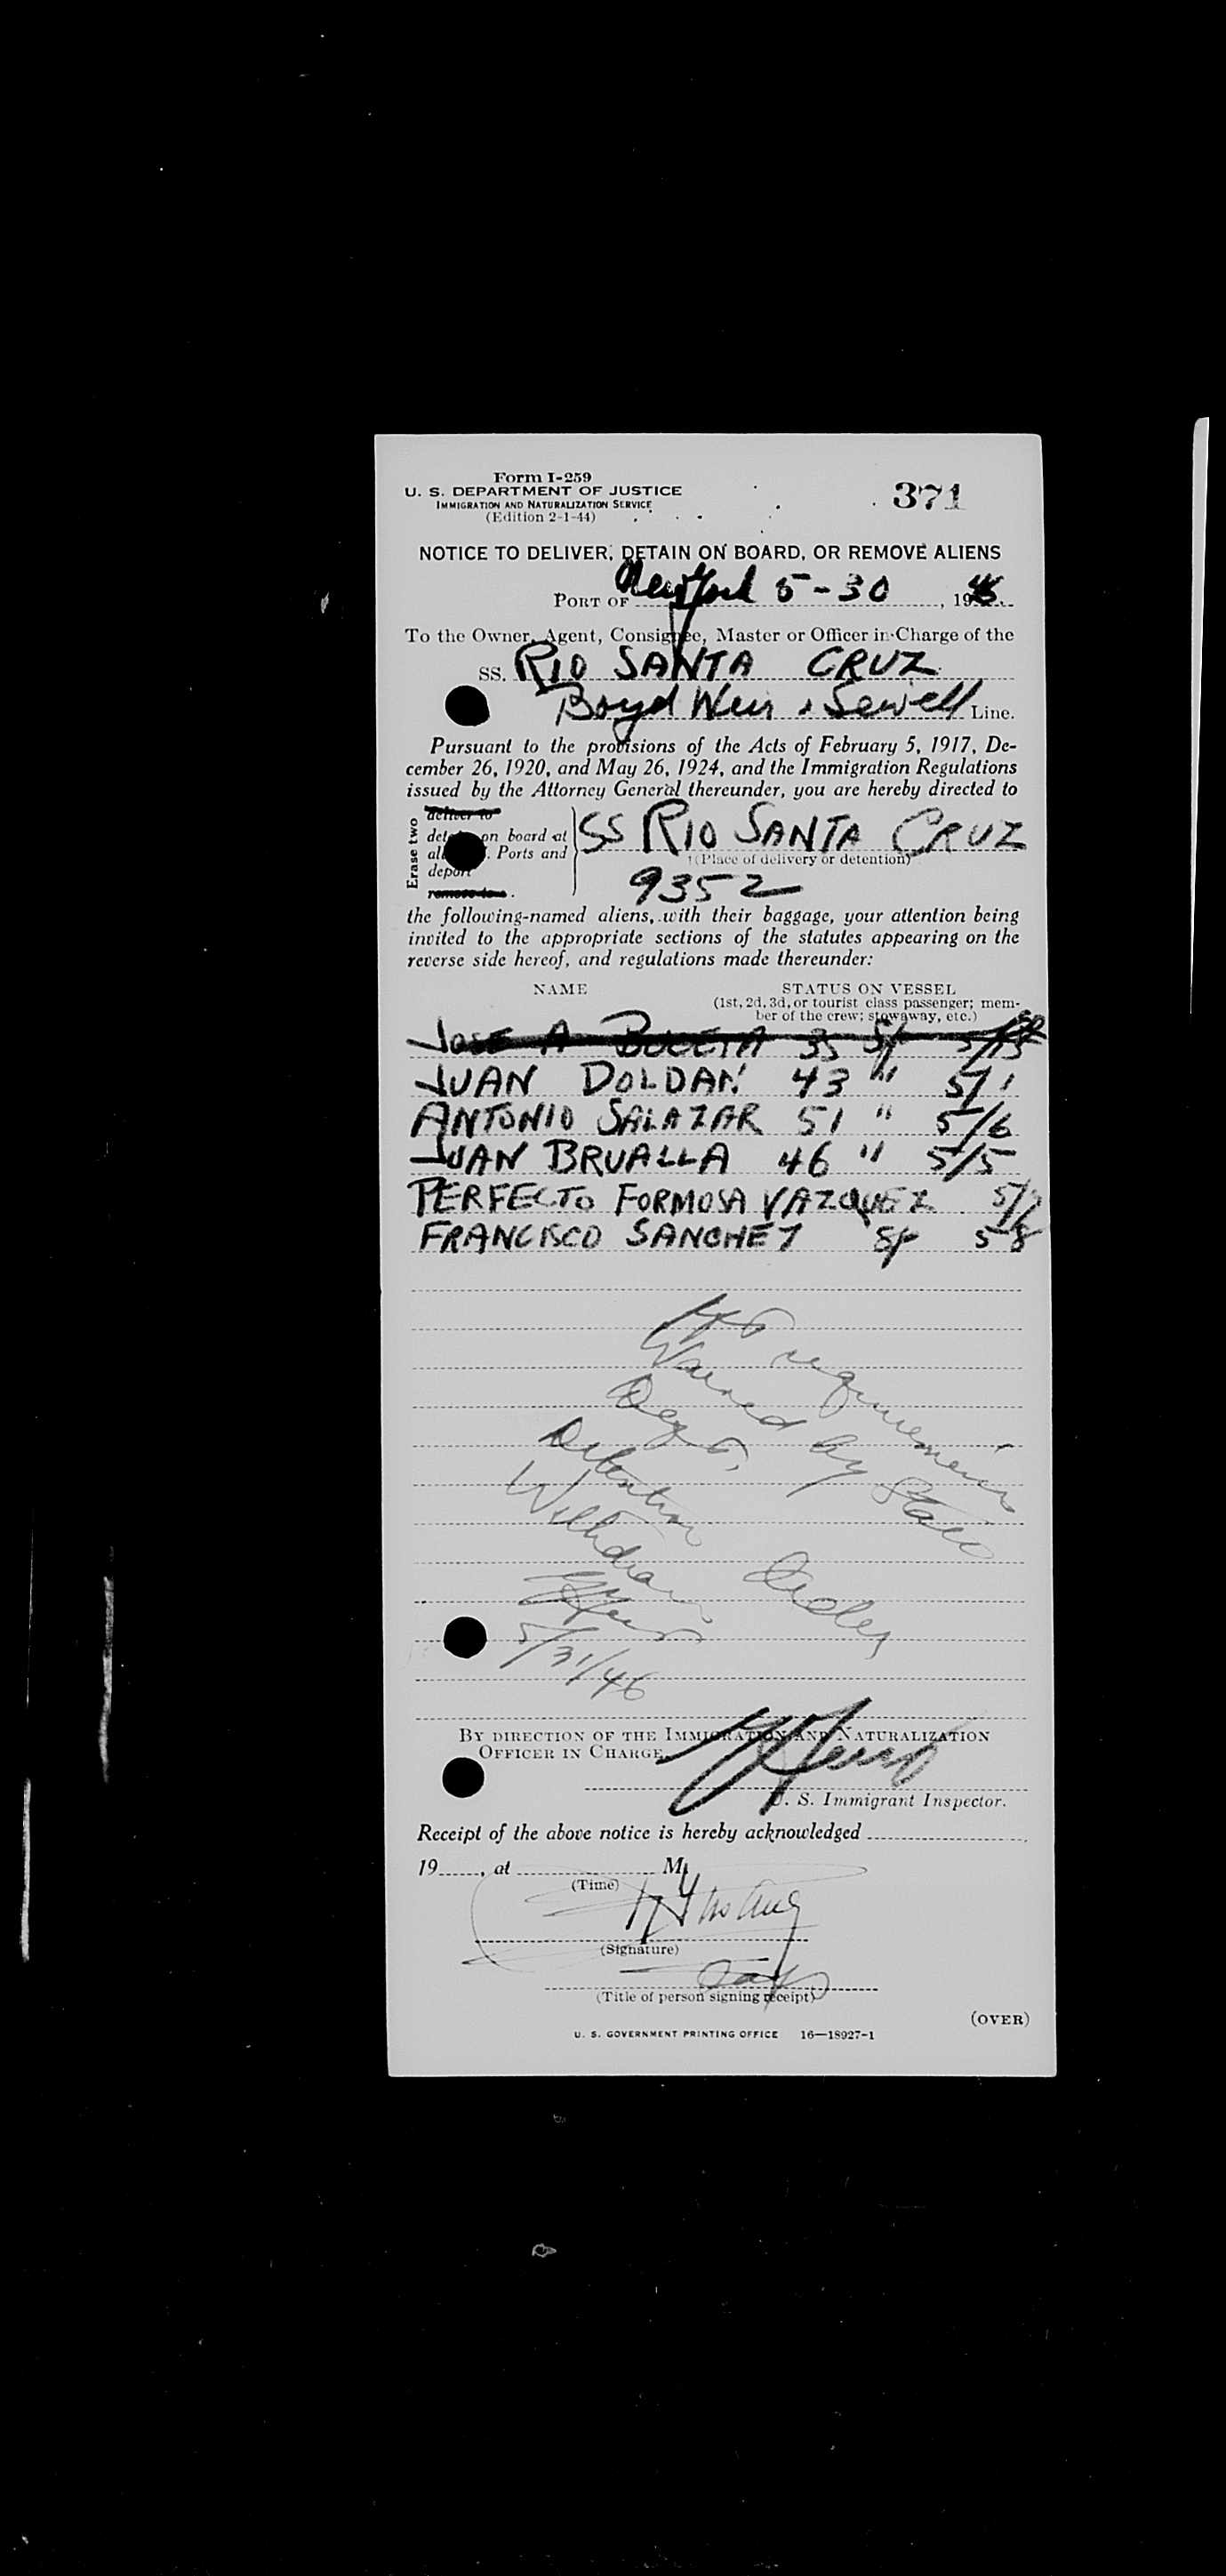 Form I-259
U. S. DEPARTMENT OF JUSTICE
IMMIGRATION AND NATURALIZATION SERVICE
(Edition 2-1-44)
371
NOTICE TO DELIVER, DETAIN ON BOARD, OR REMOVE ALIENS
PORT OF New York 5-30, 1946.
To the Owner, Agent, Consignee, Master or Officer in Charge of the
SS. RIO SANTA CRUZ
Boyd Weir & Sewell Line.
Pursuant to the provisions of the Acts of February 5, 1917, De-
cember 26, 1920, and May 26, 1924, and the Immigration Regulations
issued by the Attorney General thereunder, you are hereby directed to
Erase two
deliver to
on board at
Ports and
deport
remove to
SS RIO SANTA CRUZ
(Place of delivery or detention)
9352
the following-named aliens, with their baggage, your attention being
invited to the appropriate sections of the statutes appearing on the
reverse side hereof, and regulations made thereunder:
NAME STATUS ON VESSEL
(1st, 2d, 3d, or tourist class passenger; mem-
ber of the crew; stowaway, etc.)
JOSE A BUCETA 35 Sp
JUAN DOLDAN 43 " 5/1
ANTONIO SALAZAR 51 " 5/6
JUAN BRUALLA 46 " 5/5
PERFECTO FORMOSA VAZQUEZ
FRANCISCO SANCHEZ Sp 5-8
requirements
Waived by State
Dept.
Detention Order
Withdrawn
5/31/46
BY DIRECTION OF THE IMMIGRATION AND NATURALIZATION
OFFICER IN CHARGE
U. S. Immigrant Inspector.
Receipt of the above notice is hereby acknowledged
19, at M.
(Time)
(Signature)
(Title of person signing receipt)
(OVER)
U. S. GOVERNMENT PRINTING OFFICE 16—18927-1